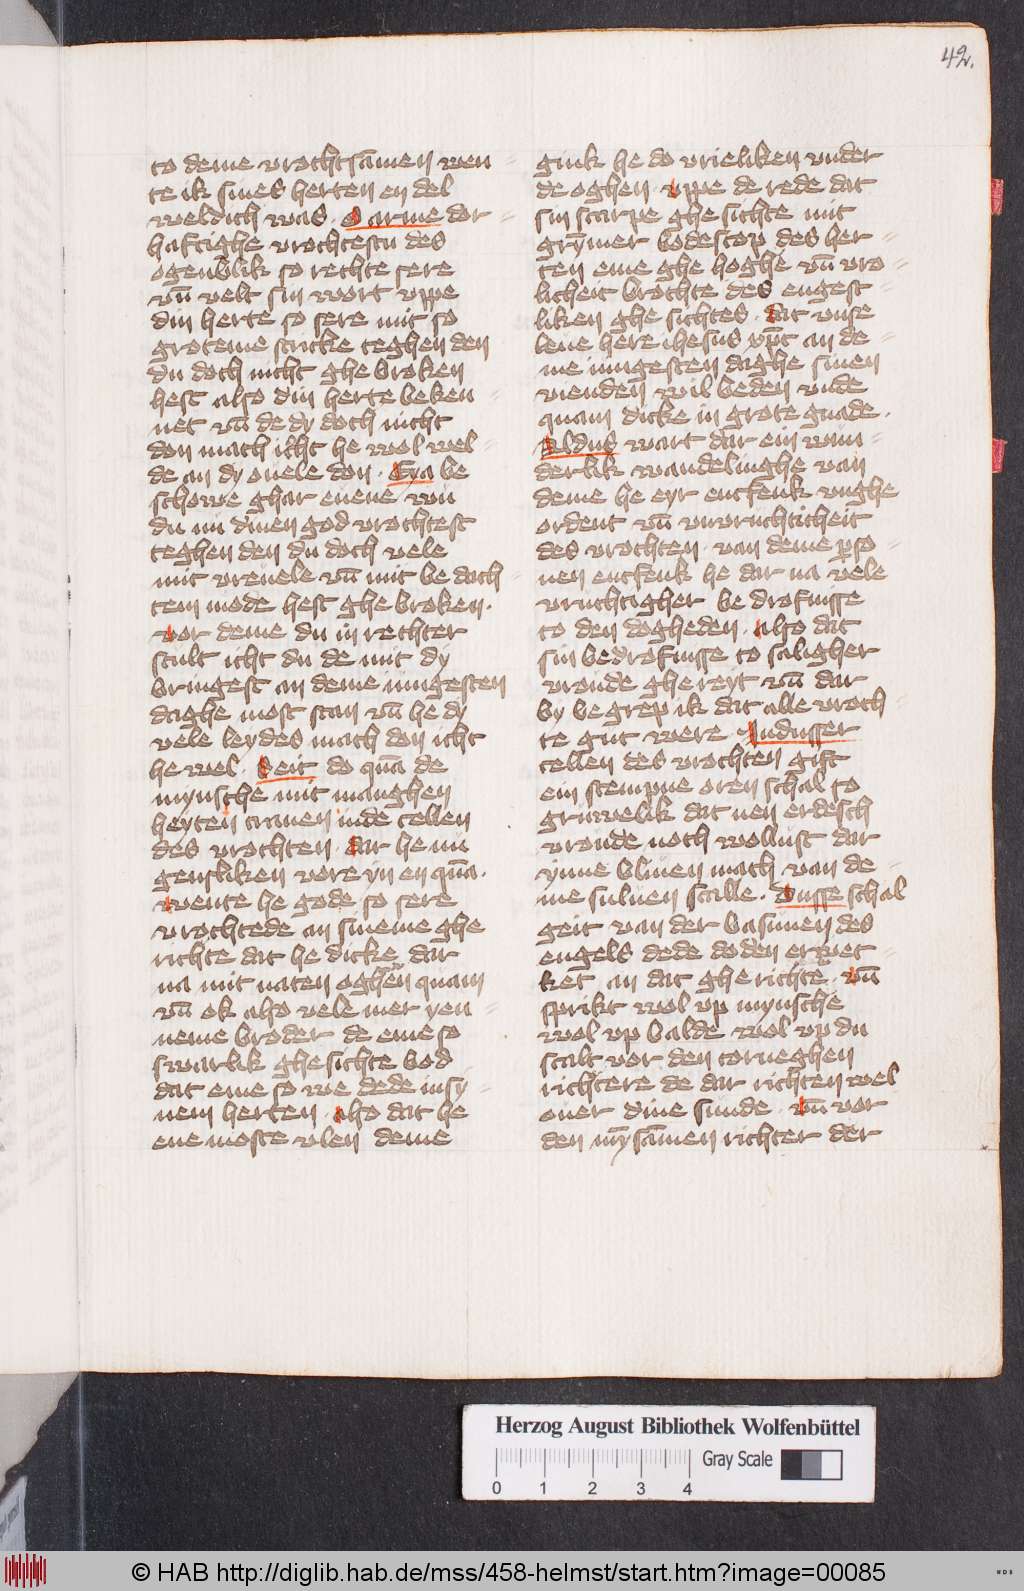 42.
to deme vrochtsāmen wen
te ik sines herten en del
weldich was. O arme dor
haftighe vrochtestu des
ogenblik so rechte sere
vn̄ velt sin wort vppe
din herte so sere mit so
groteme scricke teghen den
du doch nicht ghe broken
hest also din herte beken
net vn̄ de dy doch nicht
don mach icht he wol wel
de an dy ouele don. Eya be
schowe ghar euene wu
du nu dinen god vrochtest
teghen den du doch vele
mit vreuele vn̄ mit be dach
tem mode hest ghe broken.
vor deme du in rechter
scult icht du de mit dy
bringest an deme iungesten
daghe most stan vn̄ he dy
vele leydes mach don icht
he wel. Seit do quā de
mynsche mit manghen
heyten tranen inde cellen
des vrochten. dar he nu
gensliken vore yn en quā.
wente he gode so sere
vrochtede an sineme ghe
richte dat he dicke dar
na mit naten oghen quam
vn̄ ok also vele mer yen
neme broder de eme so
swarlik ghesichte bod
dat eme so we dede in sy
nem herten. also dat he
ene moste vlen deme
gink he do vrieliken vnder
de oghen. vppe de rede dat
sin scarpe ghe sichte mit
grymer bodescop des her
ten eme ghe hoghe vn̄ vro
licheit brochte des engest
liken ghe sichtes. dat vnse
leue here ihesus xp̄c an de
me iungesten daghe sinen
vienden wil beden vnde
quam dicke in grote gnade.
Aldus wart dar ein wun
derlik wandelinghe van
deme he eyr entfenk vnghe
ordent vn̄ vnvruchticheit
des vrochten. van deme perso
nen entfenk he dar na vele
vruchtigher be drofnisse
to den dogheden. also dat
sin bedrofnisse to saligher
vronde ghereyt vn̄ dar
by begrep ik dat alle vroch
te gut were. In dusser
cellen des vrochten gift
ein stempne oren schal to
gruwelik dat nen erdesch
vronde noch wollust dar
ynne bliuen mach van de
me suluen scalle. Dusse schal
geit van der basunen des
engels dede doden erwet
ket an dat ghe richte. vn̄
sprikt wol vp mynsche
wol vp balde wol vp du
scalt vor den torneghen
richtere de dar richten wel
ouer dine sunde. vn̄ vor
den mȳsāmen richter der
Herzog August Bibliothek Wolfenbüttel
Gray Scale
0 1 2 3 4
© HAB http://diglib.hab.de/mss/458-helmst/start.htm?image=00085